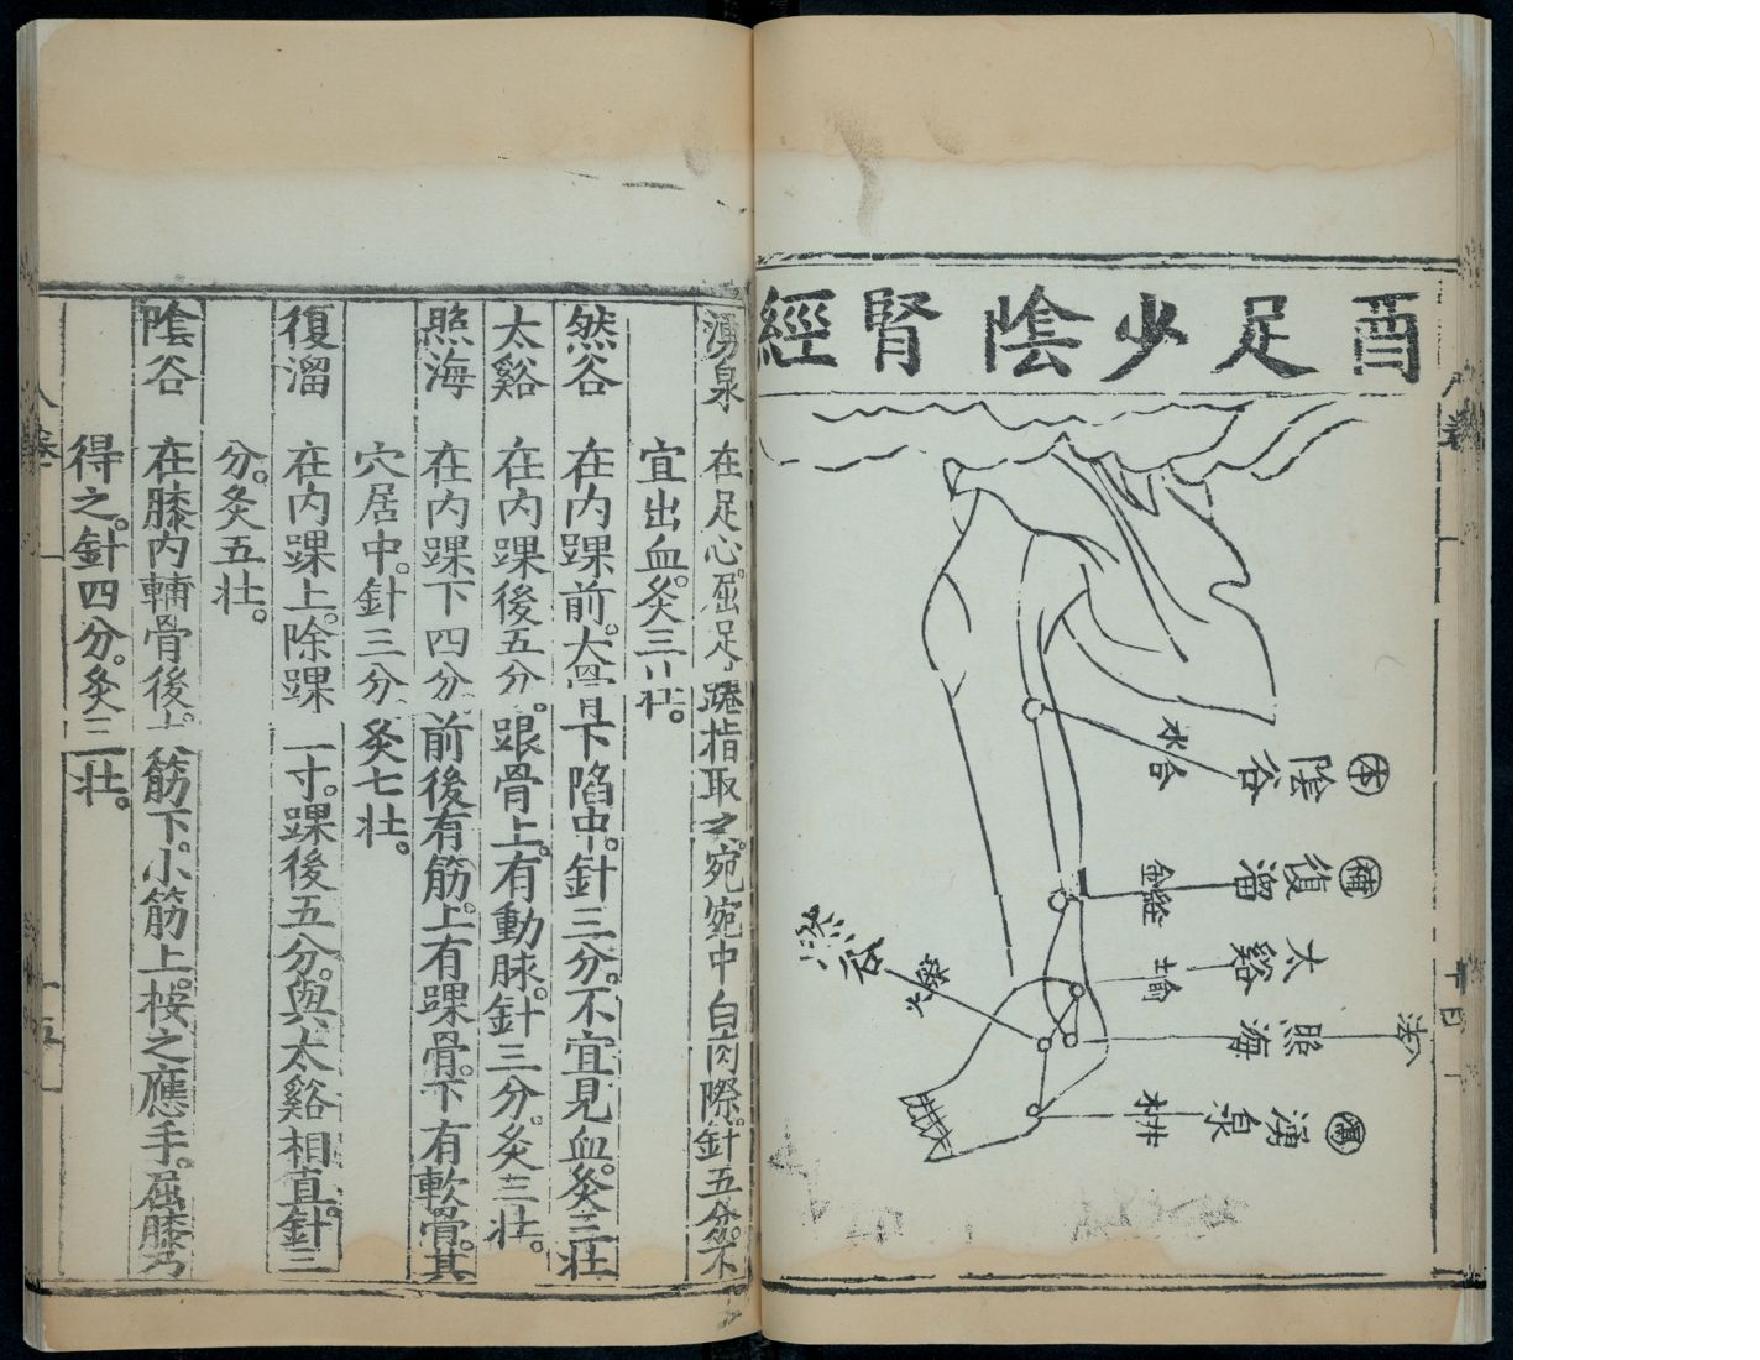 酉足少陰腎經
本 陰谷 水合
補 復溜 金經
太谿 土俞
照海
瀉 湧泉 木井
然谷 滎火
湧泉 在足心。屈足踡指取之。宛宛中白肉際。針五分。不
宜出血。灸三壯。
然谷 在內踝前。大骨下陷中。針三分。不宜見血。灸三壯
太谿 在內踝後五分。跟骨上。有動脉。針三分。灸三壯。
照海 在內踝下四分。前後有筋。上有踝骨。下有軟骨。其
穴居中。針三分。灸七壯。
復溜 在內踝上。除踝一寸。踝後五分。與太谿相直。針三
分。灸五壯。
陰谷 在膝內輔骨後。大筋下。小筋上。按之應手。屈膝乃
得之。針四分。灸三壯。